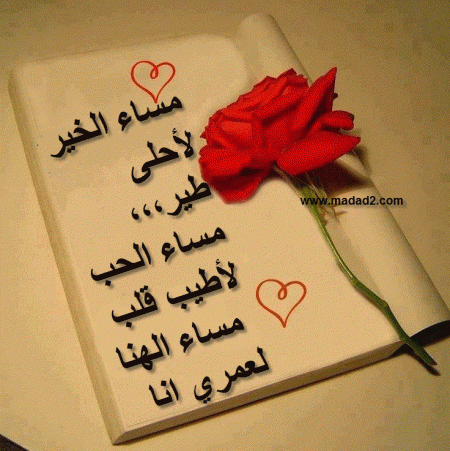 مساء الخير
لأحلى
طير،،،
مساء الحب
لأطيب قلب
مساء الهنا
لعمري انا
www.madad2.com